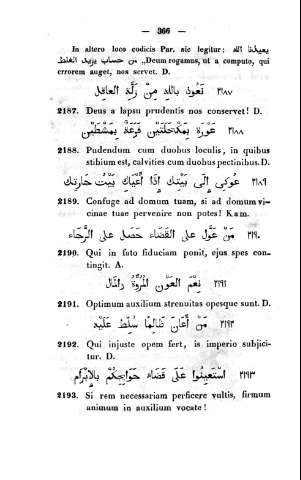 — 366 —
In altero loco codicis Par. sic legitur: يعيذنا الله
من حساب يزيد الغلط „Deum rogamus, ut a computo, qui
errorem auget, nos servet. D.
٢١٨٧ نَعُوذُ بِاللهِ مِنْ زَلَّةِ العَاقِلِ
2187. Deus a lapsu prudentis nos conservet! D.
٢١٨٨ عَوْرَة بِمُكْحُلَتَيْنِ قَرْعَة بِمُشْطَيْنِ
2188. Pudendum cum duobus loculis, in quibus
stibium est, calvities cum duobus pectinibus. D.
٢١٨٩ عُوكِي إِلَى بَيْتِكِ إِذَا أَعْيَاكِ بَيْتُ جَارَتِكِ
2189. Confuge ad domum tuam, si ad domum vi-
cinae tuae pervenire non potes! Kam.
٢١٩٠ مَنْ عَوَّلَ عَلَى القَضَاءِ حَصَلَ عَلَى الرَّجَاءِ
2190. Qui in fato fiduciam ponit, ejus spes con-
tingit. A.
٢١٩١ نِعْمَ العَوْنُ المُرُوَّةُ وَالمَالُ
2191. Optimum auxilium strenuitas opesque sunt. D.
٢١٩٢ مَنْ أَعَانَ ظَالِمًا سُلِّطَ عَلَيْهِ
2192. Qui injuste opem fert, is imperio subjici-
tur. D.
٢١٩٣ اسْتَعِينُوا عَلَى قَضَاءِ حَوَائِجِكُمْ بِالإِبْرَامِ
2193. Si rem necessariam perficere vultis, firmum
animum in auxilium vocate!